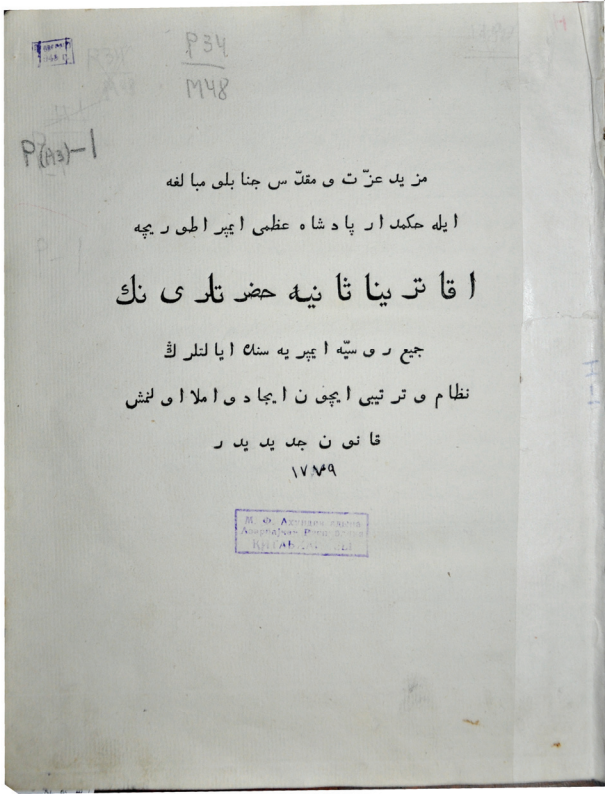 P34
M48
P(A3)-1
مزید عزّت و مقدّس جنابلو مبالغه
ایله حكمدار پادشاه عظمی ایمپراطوریچه
اقاترینا ثانیه حضرتلری نك
جمیع روسیّه ایمپریه سنك ایالتلرڭ
نظام و ترتیبی ایچون ایجاد و املا اولنمش
قانون جدیدیدر
М. Ф. Ахундов адына
Азәрбајҹан Респ
КИТАБ